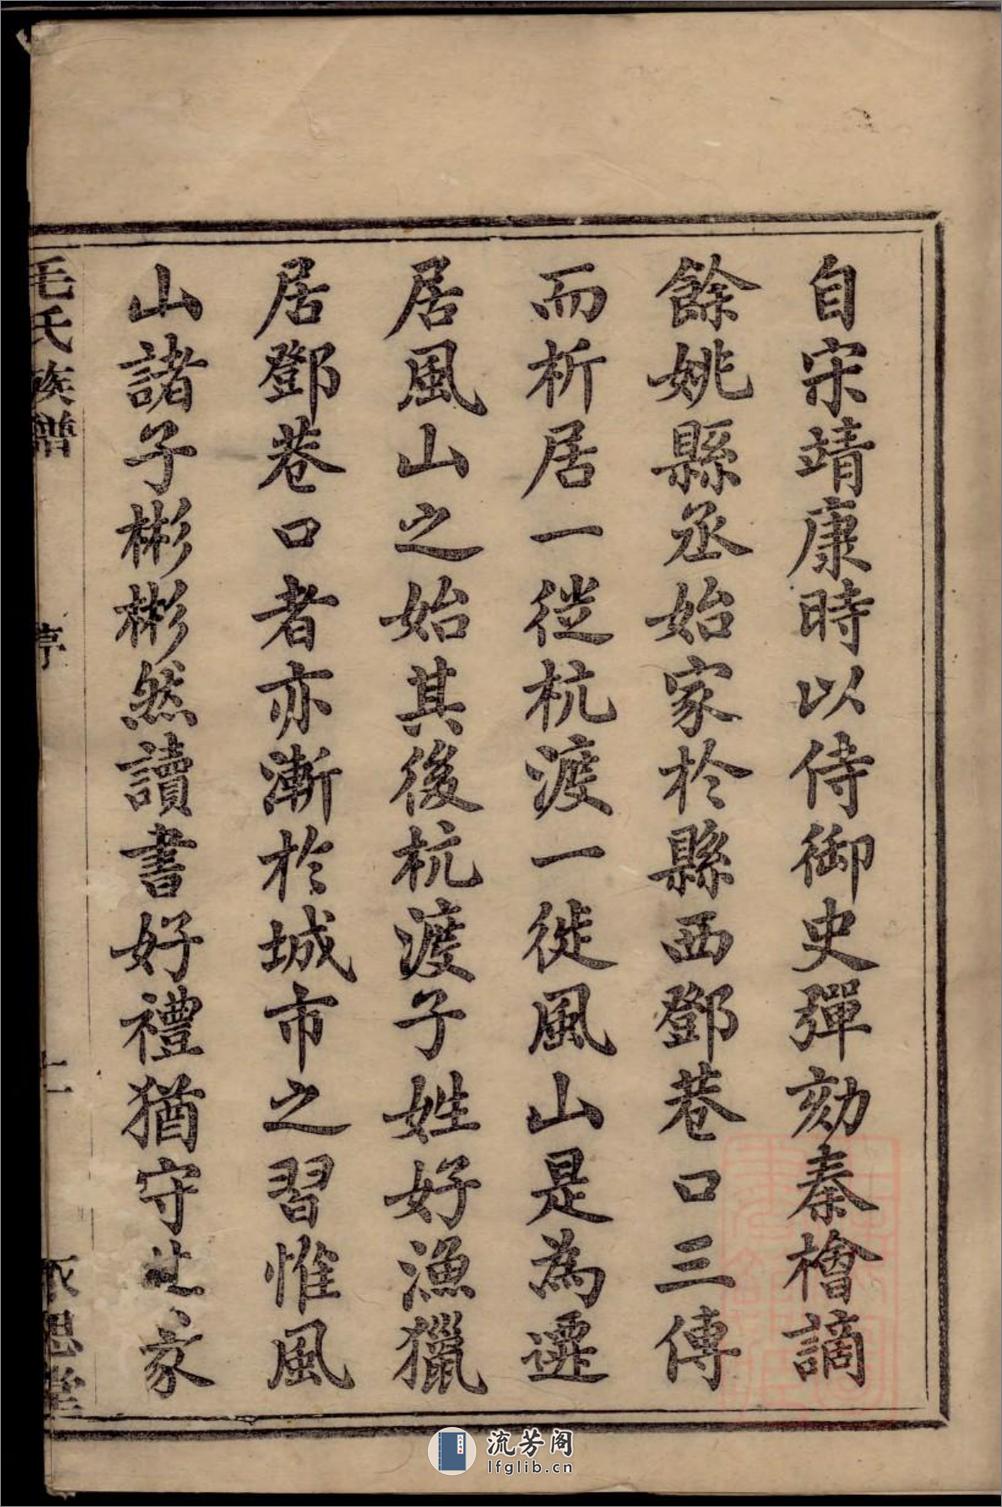 自宋靖康時以侍御史彈劾秦檜謫
餘姚縣丞始家於縣西鄧巷口三傳
而析居一從杭渡一徙風山是為遷
居風山之始其後杭渡子姓好漁獵
居鄧巷口者亦漸於城市之習惟風
山諸子彬彬然讀書好禮猶守其家
毛氏族譜
序
永思堂
流芳阁
lfglib.cn